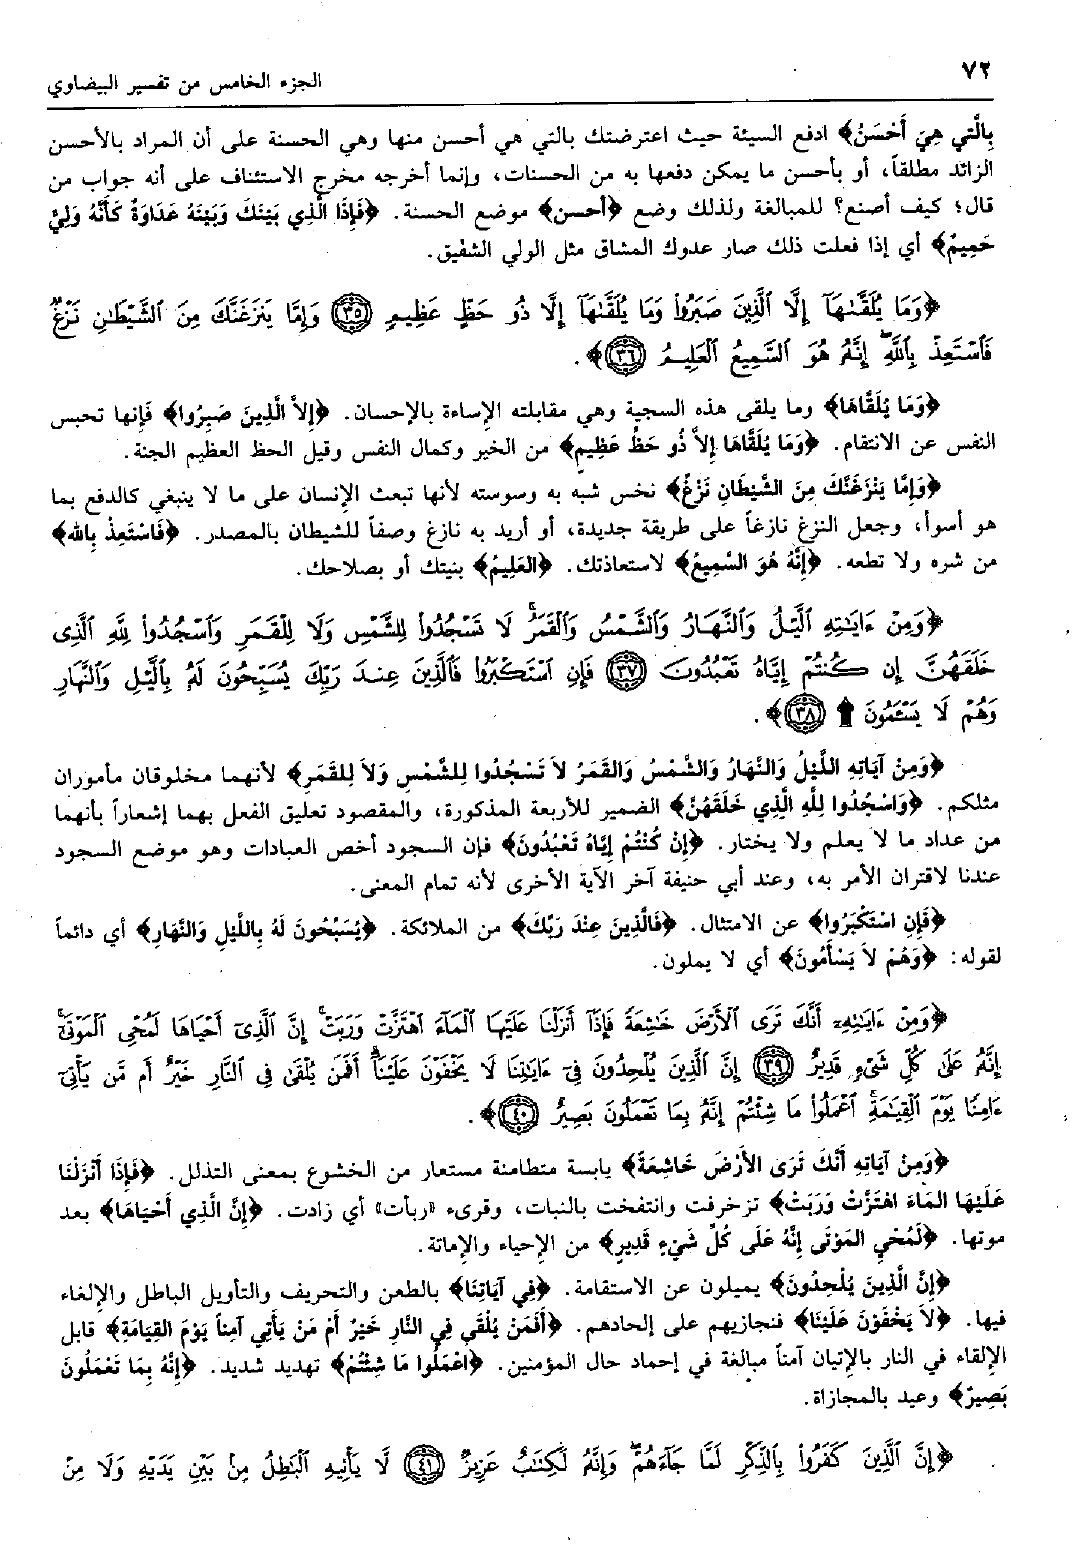 ٧٢
الجزء الخامس من تفسير البيضاوي
بِالَّتي هِيَ أَحْسَنُ﴾ ادفع السيئة حيث اعترضتك بالتي هي أحسن منها وهي الحسنة على أن المراد بالأحسن
الزائد مطلقاً، أو بأحسن ما يمكن دفعها به من الحسنات، وإنما أخرجه مخرج الاستئناف على أنه جواب من
قال؛ كيف أصنع؟ للمبالغة ولذلك وضع ﴿أحسن﴾ موضع الحسنة. ﴿فَإِذَا الَّذِي بَيْنَكَ وَبَيْنَهُ عَدَاوَةٌ كَأَنَّهُ وَلِيٌّ
حَمِيمٌ﴾ أي إذا فعلت ذلك صار عدوك المشاق مثل الولي الشفيق.
﴿وَمَا يُلَقَّىٰهَآ إِلَّا ٱلَّذِينَ صَبَرُوا۟ وَمَا يُلَقَّىٰهَآ إِلَّا ذُو حَظٍّ عَظِيمٍ ﴿٣٥﴾ وَإِمَّا يَنزَغَنَّكَ مِنَ ٱلشَّيْطَٰنِ نَزْغٌ
فَٱسْتَعِذْ بِٱللَّهِ ۖ إِنَّهُۥ هُوَ ٱلسَّمِيعُ ٱلْعَلِيمُ ﴿٣٦﴾﴾.
﴿وَمَا يُلَقَّاهَا﴾ وما يلقى هذه السجية وهي مقابلته الإساءة بالإحسان. ﴿إِلاَّ الَّذِينَ صَبِرُوا﴾ فَإنها تحبس
النفس عن الانتقام. ﴿وَمَا يُلَقَّاهَا إِلاَّ ذُو حَظٍّ عَظِيمٍ﴾ من الخير وكمال النفس وقيل الحظ العظيم الجنة.
﴿وَإِمَّا يَنْزَغَنَّكَ مِنَ الشَّيْطَانِ نَزْغٌ﴾ نخس شبه به وسوسته لأنها تبعث الإنسان على ما لا ينبغي كالدفع بما
هو أسوأ، وجعل النزغ نازغاً على طريقة جديدة، أو أريد به نازغ وصفاً للشيطان بالمصدر. ﴿فَاسْتَعِذْ بِالله﴾
من شره ولا تطعه. ﴿إِنَّهُ هُوَ السَّمِيعُ﴾ لاستعاذتك. ﴿العَلِيمُ﴾ بنيتك أو بصلاحك.
﴿وَمِنْ ءَايَٰتِهِ ٱلَّيْلُ وَٱلنَّهَارُ وَٱلشَّمْسُ وَٱلْقَمَرُ ۚ لَا تَسْجُدُوا۟ لِلشَّمْسِ وَلَا لِلْقَمَرِ وَٱسْجُدُوا۟ لِلَّهِ ٱلَّذِى
خَلَقَهُنَّ إِن كُنتُمْ إِيَّاهُ تَعْبُدُونَ ﴿٣٧﴾ فَإِنِ ٱسْتَكْبَرُوا۟ فَٱلَّذِينَ عِندَ رَبِّكَ يُسَبِّحُونَ لَهُۥ بِٱلَّيْلِ وَٱلنَّهَارِ
وَهُمْ لَا يَسْـَٔمُونَ ۩ ﴿٣٨﴾﴾.
﴿وَمِنْ آيَاتِهِ اللَّيْلُ وَالنَّهَارُ وَالشَّمْسُ وَالقَمَرُ لاَ تَسْجُدُوا لِلشَّمْسِ وَلاَ لِلقَمَرِ﴾ لأنهما مخلوقان مأموران
مثلكم. ﴿وَاسْجُدُوا لِلَّهِ الَّذِي خَلَقَهُنَّ﴾ الضمير للأربعة المذكورة، والمقصود تعليق الفعل بهما إشعاراً بأنهما
من عداد ما لا يعلم ولا يختار. ﴿إِنْ كُنْتُمْ إِيَّاهُ تَعْبُدُونَ﴾ فإن السجود أخص العبادات وهو موضع السجود
عندنا لاقتران الأمر به، وعند أبي حنيفة آخر الآية الأخرى لأنه تمام المعنى.
﴿فَإِنِ اسْتَكْبَرُوا﴾ عن الامتثال. ﴿فَالَّذِينَ عِنْدَ رَبِّكَ﴾ من الملائكة. ﴿يُسَبِّحُونَ لَهُ بِاللَّيْلِ وَالنَّهَارِ﴾ أي دائماً
لقوله: ﴿وَهُمْ لاَ يَسْأَمُونَ﴾ أي لا يملون.
﴿وَمِنْ ءَايَٰتِهِۦٓ أَنَّكَ تَرَى ٱلْأَرْضَ خَٰشِعَةً فَإِذَآ أَنزَلْنَا عَلَيْهَا ٱلْمَآءَ ٱهْتَزَّتْ وَرَبَتْ ۚ إِنَّ ٱلَّذِىٓ أَحْيَاهَا لَمُحْىِ ٱلْمَوْتَىٰٓ ۚ
إِنَّهُۥ عَلَىٰ كُلِّ شَىْءٍ قَدِيرٌ ﴿٣٩﴾ إِنَّ ٱلَّذِينَ يُلْحِدُونَ فِىٓ ءَايَٰتِنَا لَا يَخْفَوْنَ عَلَيْنَآ ۗ أَفَمَن يُلْقَىٰ فِى ٱلنَّارِ خَيْرٌ أَم مَّن يَأْتِىٓ
ءَامِنًا يَوْمَ ٱلْقِيَٰمَةِ ۚ ٱعْمَلُوا۟ مَا شِئْتُمْ إِنَّهُۥ بِمَا تَعْمَلُونَ بَصِيرٌ ﴿٤٠﴾﴾.
﴿وَمِنْ آيَاتِهِ أَنَّكَ تَرَى الأَرْضَ خَاشِعَةً﴾ يابسة متطامنة مستعار من الخشوع بمعنى التذلل. ﴿فَإِذَا أَنْزَلْنَا
عَلَيْهَا المَاءَ اهْتَزَّتْ وَرَبَتْ﴾ تزخرفت وانتفخت بالنبات، وقرىء «ربأت» أي زادت. ﴿إِنَّ الَّذِي أَحْيَاهَا﴾ بعد
موتها. ﴿لَمُحْيِ المَوْتَى إِنَّهُ عَلَى كُلِّ شَيْءٍ قَدِيرٍ﴾ من الإحياء والإماتة.
﴿إِنَّ الَّذِينَ يُلْحِدُونَ﴾ يميلون عن الاستقامة. ﴿فِي آيَاتِنَا﴾ بالطعن والتحريف والتأويل الباطل والإلغاء
فيها. ﴿لاَ يَخْفَوْنَ عَلَيْنَا﴾ فنجازيهم على إلحادهم. ﴿أَفَمَنْ يُلْقَى فِي النَّارِ خَيْرٌ أَمْ مَنْ يَأْتِي آمِناً يَوْمَ القِيَامَةِ﴾ قابل
الإلقاء في النار بالإتيان آمناً مبالغة في إحماد حال المؤمنين. ﴿اعْمَلُوا مَا شِئْتُمْ﴾ تهديد شديد. ﴿إِنَّهُ بِمَا تَعْمَلُونَ
بَصِيرٌ﴾ وعيد بالمجازاة.
﴿إِنَّ ٱلَّذِينَ كَفَرُوا۟ بِٱلذِّكْرِ لَمَّا جَآءَهُمْ ۖ وَإِنَّهُۥ لَكِتَٰبٌ عَزِيزٌ ﴿٤١﴾ لَّا يَأْتِيهِ ٱلْبَٰطِلُ مِنۢ بَيْنِ يَدَيْهِ وَلَا مِنْ